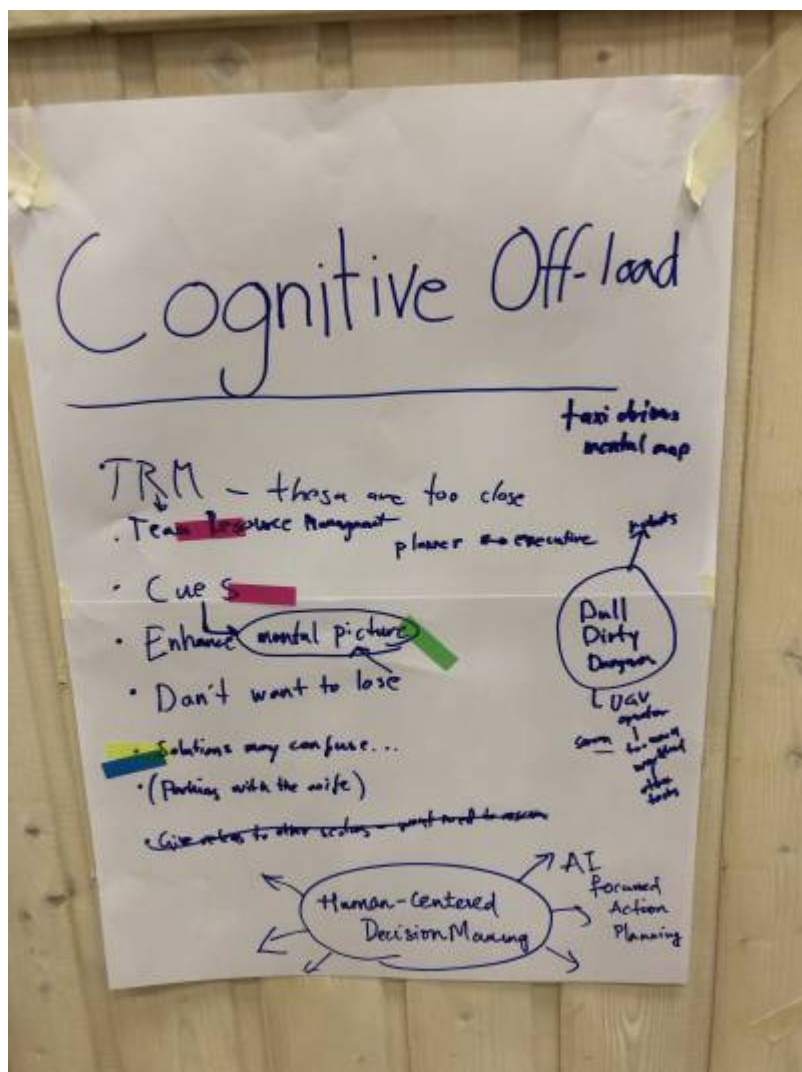 Cognitive Off-load
taxi drivers
mental map
• TRM – these are too close
• Team Resource Managment
planner ↔ executive
robots
• Cues
Dull
Dirty
• Enhance mental picture
• Don't want to lose
UGV
operator
• Solutions may confuse...
• (Parking with the wife)
workload
other
tasks
• Give to other sectors –
Human-Centered
Decision Making
AI
focused
Action
Planning